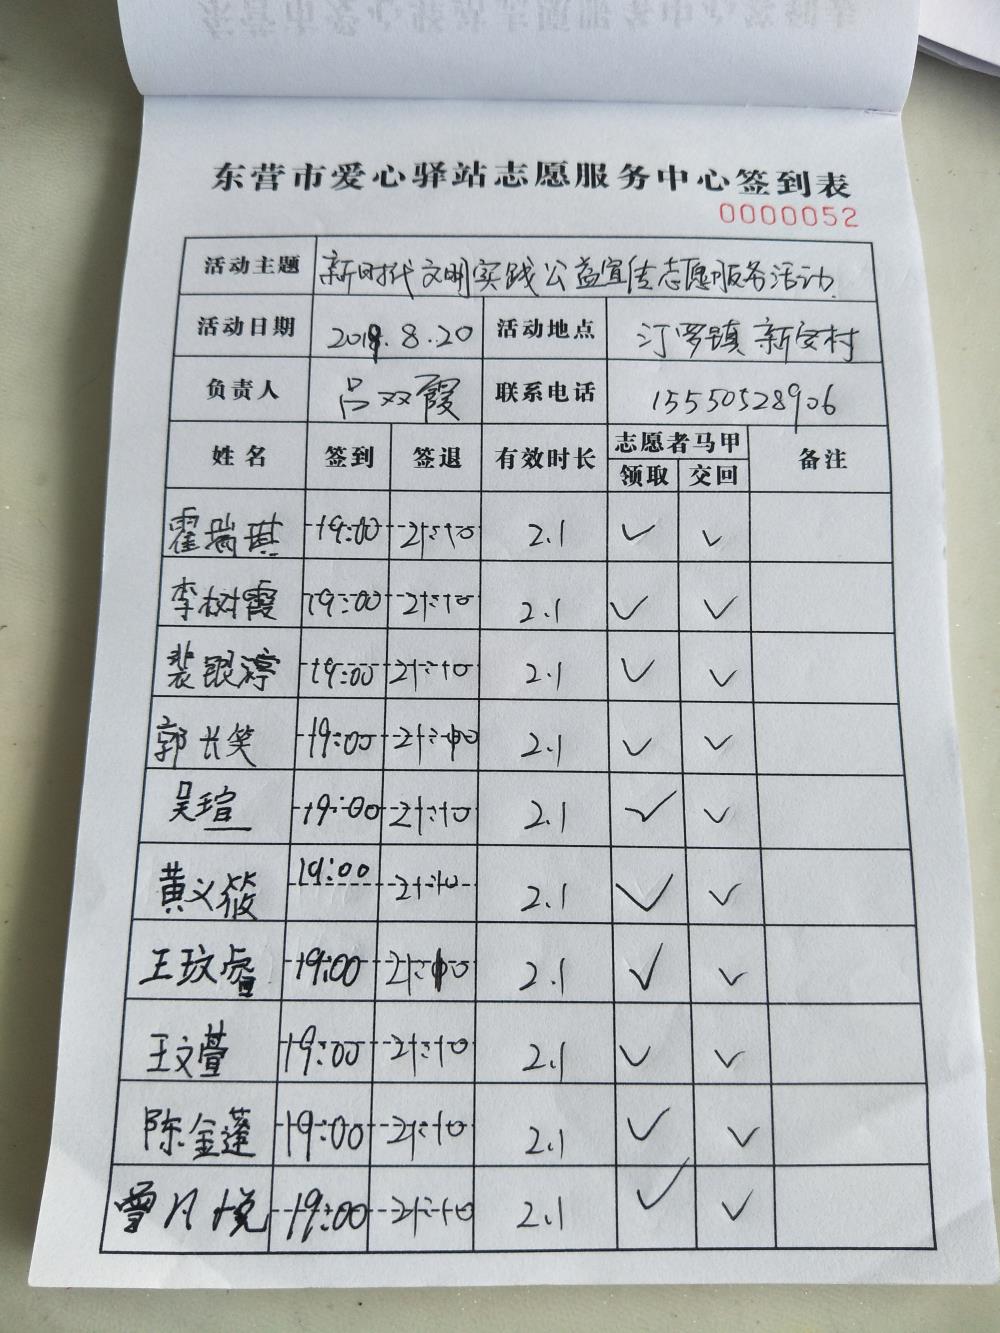 东营市爱心驿站志愿服务中心签到表
0000052
活动主题 新时代文明实践公益宣传志愿服务活动
活动日期 2019.8.20 活动地点 汀罗镇新安村
负责人 吕双霞 联系电话 15550528906
姓名 签到 签退 有效时长 志愿者马甲 领取 交回 备注
霍瑞琪 19:00 21:10 2.1 ✓ ✓
李树霞 19:00 21:10 2.1 ✓ ✓
裴银淳 19:00 21:10 2.1 ✓ ✓
郭长笑 19:00 21:10 2.1 ✓ ✓
吴瑄 19:00 21:10 2.1 ✓ ✓
黄义筱 19:00 21:10 2.1 ✓ ✓
王玟睿 19:00 21:10 2.1 ✓ ✓
王文萱 19:00 21:10 2.1 ✓ ✓
陈金蓬 19:00 21:10 2.1 ✓ ✓
曾凡悦 19:00 21:10 2.1 ✓ ✓